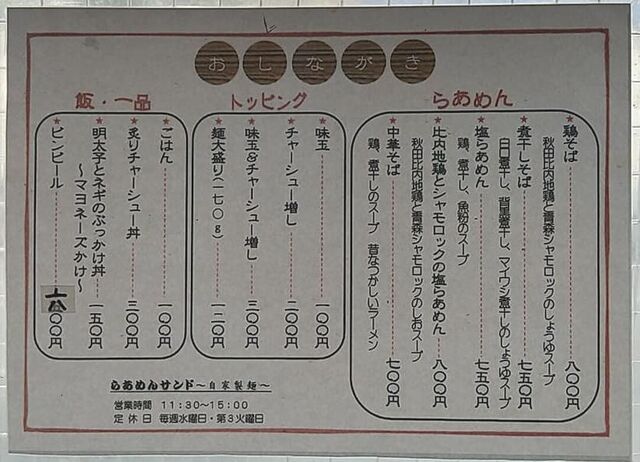 おしながき
らあめん
★鶏そば 八〇〇円
秋田比内地鶏と青森シャモロックのしょうゆスープ
★煮干しそば 七五〇円
白口煮干し、背黒煮干し、マイワシ煮干しのしょうゆスープ
★塩らあめん 七五〇円
鶏、煮干し、魚粉のスープ
★比内地鶏とシャモロックの塩らあめん 八〇〇円
秋田比内地鶏と青森シャモロックのしおスープ
★中華そば 七〇〇円
鶏、煮干しのスープ 昔なつかしいラーメン
トッピング
★味玉 一〇〇円
★チャーシュー増し 二〇〇円
★味玉&チャーシュー増し 三〇〇円
★麺大盛り(一七〇g) 一二〇円
飯・一品
★ごはん 一〇〇円
★炙りチャーシュー丼 三〇〇円
★明太子とネギのぶっかけ丼 一五〇円
~マヨネーズかけ~
★ビンビール
らあめんサンド~自家製麺~
営業時間 11:30~15:00
定休日 毎週水曜日・第3火曜日